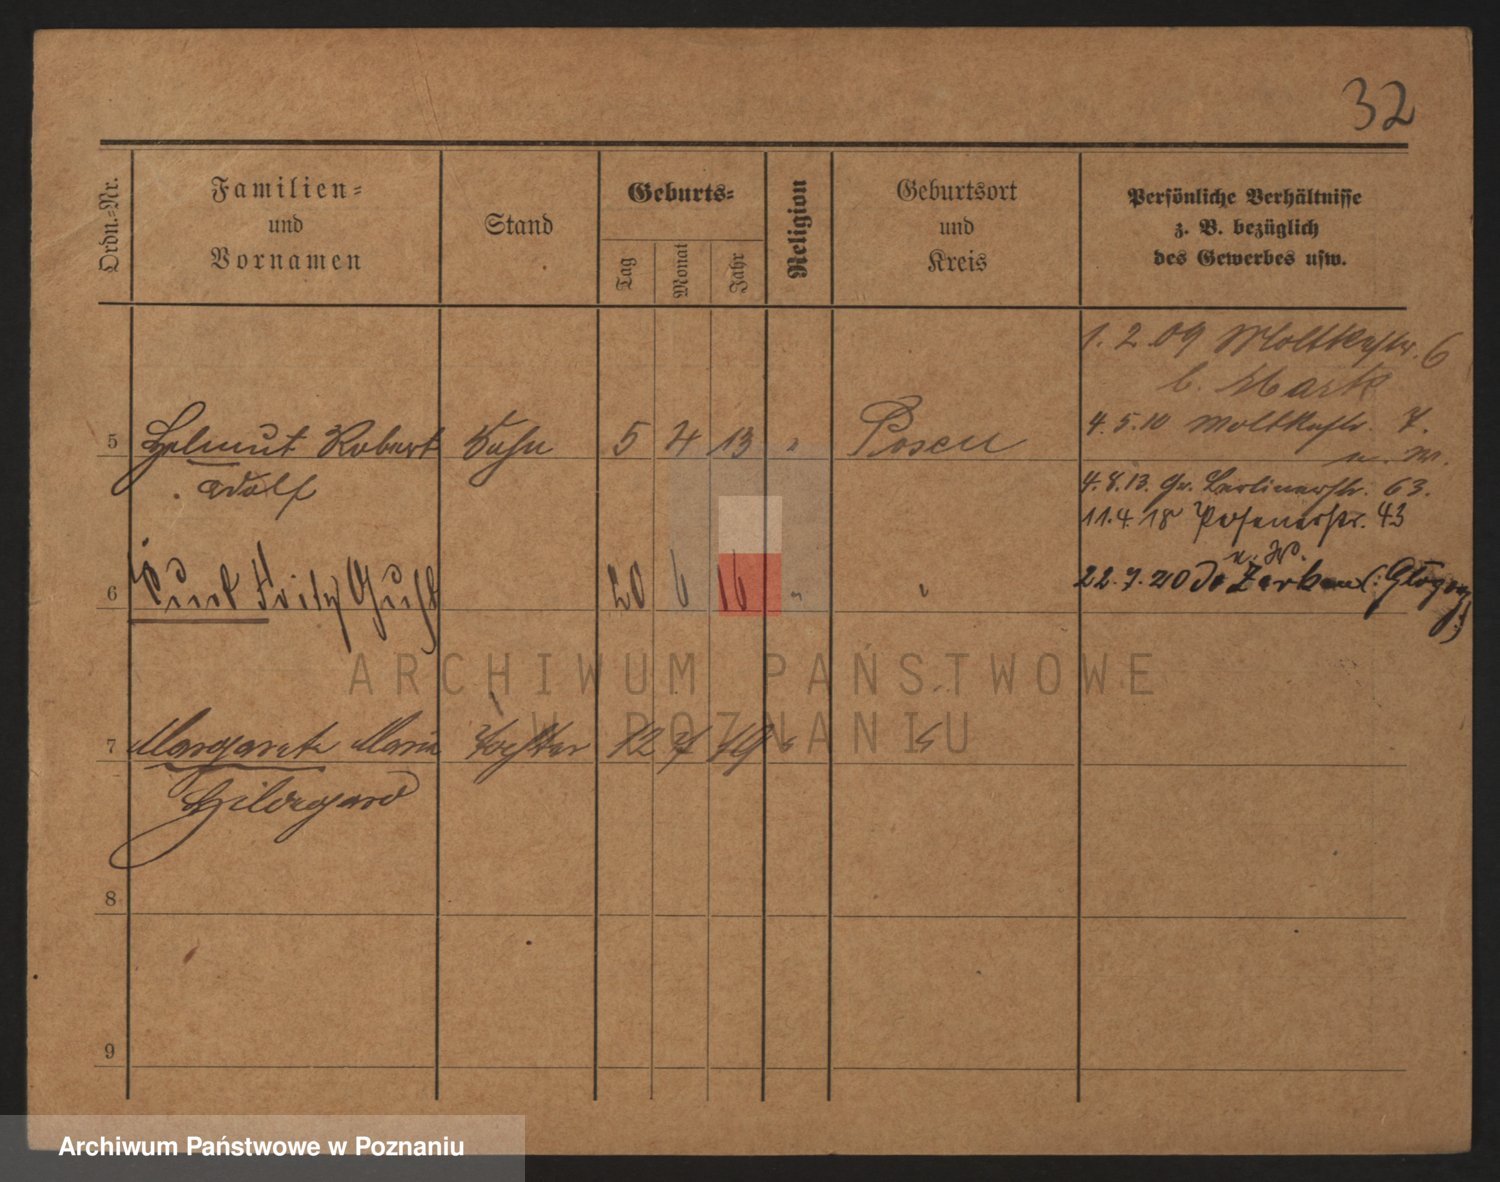 32
Ordn.-Nr.
Familien-
und
Vornamen
Stand
Geburts-
Tag
Monat
Jahr
Religion
Geburtsort
und
Kreis
Persönliche Verhältnisse
z. B. bezüglich
des Gewerbes usw.
1. 2. 09 Moltkestr. 6
b. Mark
4. 5. 10 Moltkestr. 7.
5 Helmut Robert Sohn 5 4 13 " Posen
Adolf
4. 8. 13. Gr. Berlinerstr. 63.
11. 4. 18 Posenerstr. 43
u. W.
6 Curt Fritz 20 6 16 " "
22. 7. 20 Zerbau (: Glogau :)
7 Margarete Maria Tochter 12 7 19 " "
Hildegard
8
9
ARCHIWUM PAŃSTWOWE
W POZNANIU
Archiwum Państwowe w Poznaniu